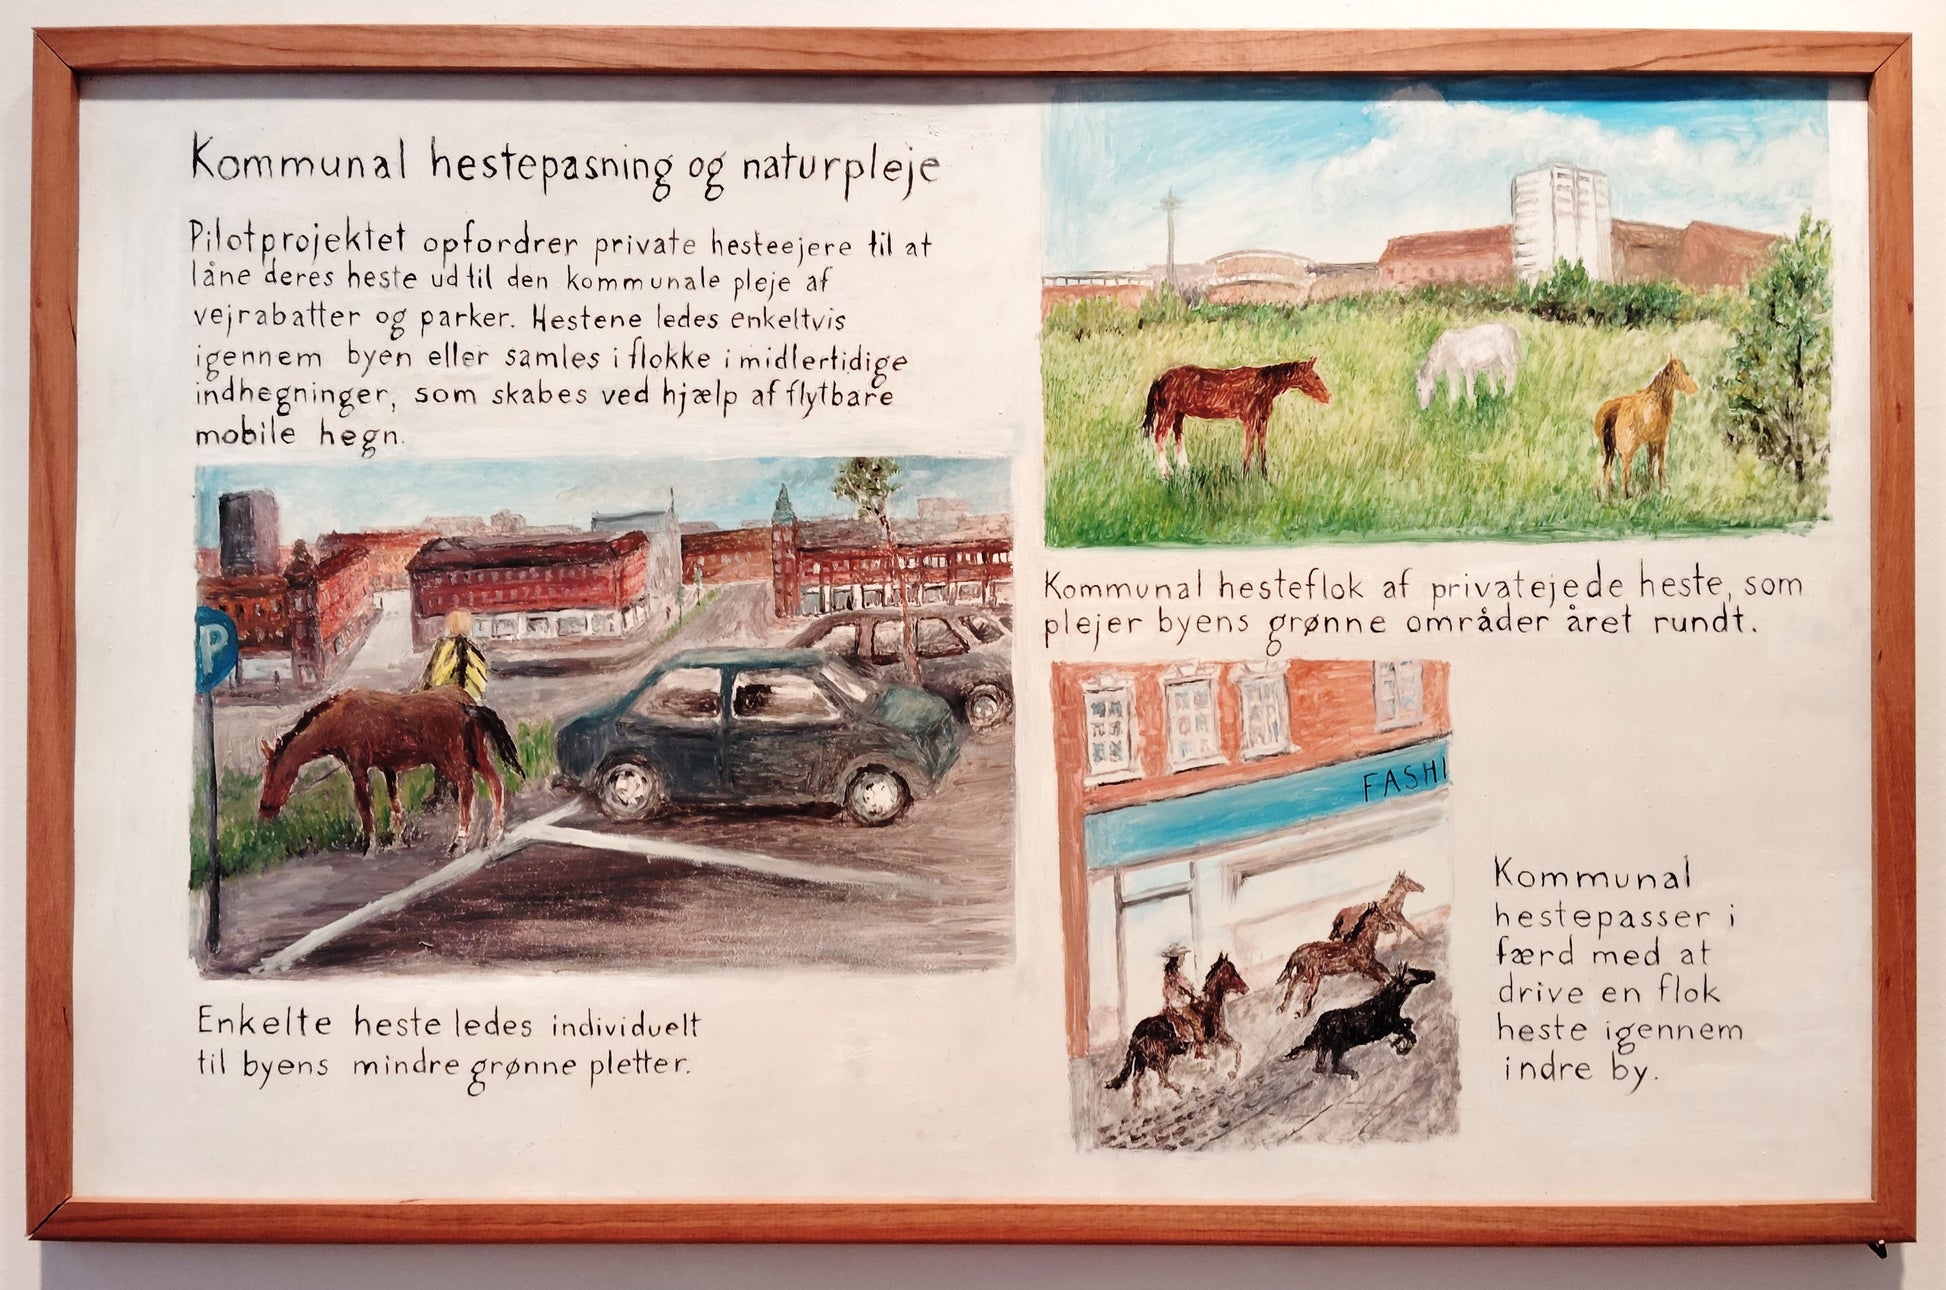 Kommunal hestepasning og naturpleje
Pilotprojektet opfordrer private hesteejere til at
låne deres heste ud til den kommunale pleje af
vejrabatter og parker. Hestene ledes enkeltvis
igennem byen eller samles i flokke i midlertidige
indhegninger, som skabes ved hjælp af flytbare
mobile hegn.
P
Enkelte heste ledes individuelt
til byens mindre grønne pletter.
Kommunal hesteflok af privatejede heste, som
plejer byens grønne områder året rundt.
FASHI
Kommunal
hestepasser i
færd med at
drive en flok
heste igennem
indre by.